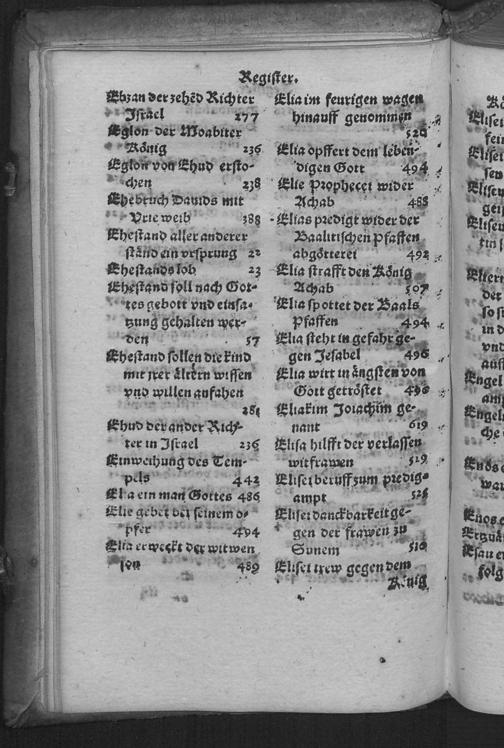 Register.
Ebzan der zehēd Richter
Israel 277
Eglon der Moabiter
König 236
Eglon von Ehud ersto-
chen 238
Ehebruch Dauids mit
Vrie weib 388
Ehestand aller anderer
ständ ein vrsprung 22
Ehestands lob 23
Ehestand soll nach Got-
tes gebott vnd einsa-
tzung gehalten wer-
den 57
Ehestand sollen die kind
mit jrer ältern wissen
vnd willen anfahen
281
Ehud der ander Rich-
ter in Israel 236
Einweihung des Tem-
pels 442
Elia ein man Gottes 486
Elie gebet bei seinem o-
pfer 494
Elia erweckt der witwen
son 489
Elia im feurigen wagen
hinauff genommen
520
Elia opffert dem leben-
digen Gott 494
Elie Prophecei wider
Achab 488
Elias predigt wider der
Baalitischen Pfaffen
abgötterei 492
Elia strafft den König
Achab 507
Elia spottet der Baals
Pfaffen 494
Elia steht in gefahr ge-
gen Jesabel 496
Elia wirt in ängsten von
Gott getröstet 496
Eliakim Joiachim ge-
nant 619
Elisa hilfft der verlassen
witfrawen 519
Elisei beruff zum predig-
ampt
Elisei danckbarkeit ge-
gen der frawen zu
Sunem
Elisei trew gegen dem
König